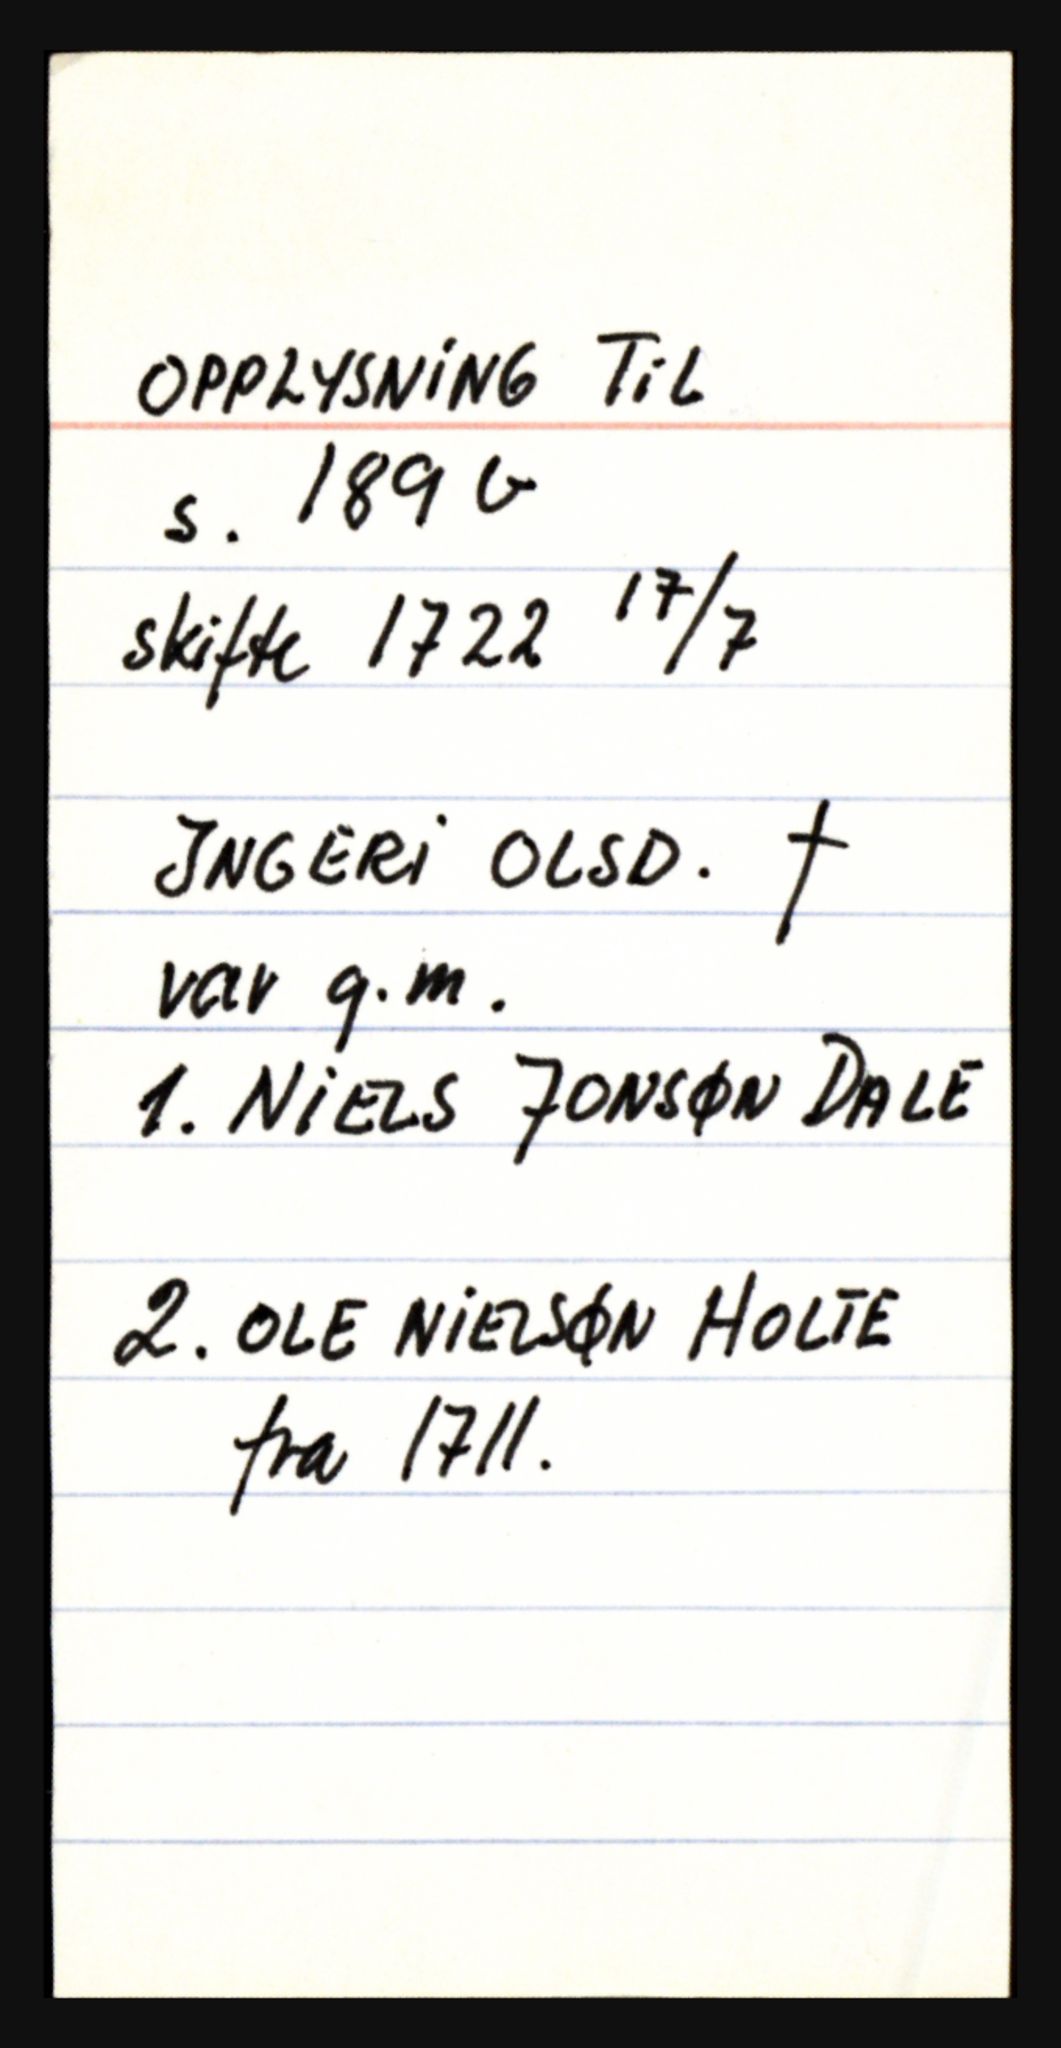 OPPLYSNING TIL
s. 189 b
skifte 1722 17/7
INGERI OLSD. †
var g.m.
1. NIELS JONSØN DALE
2. OLE NIELSØN HOLTE
fra 1711.